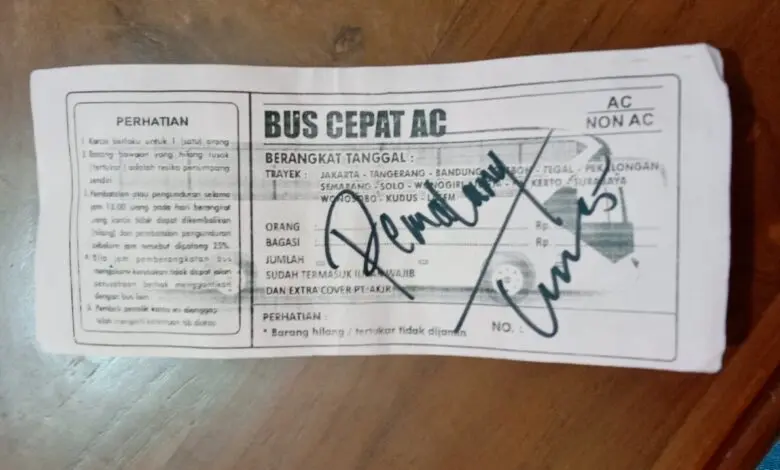 PERHATIAN
1. Karcis berlaku untuk 1 (satu) orang
2. Barang bawaan yang hilang rusak
(tertukar) adalah resiko penumpang
sendiri
3. Pembatalan atau pengunduran selama
jam 12.00 siang pada hari berangkat
uang karcis tidak dapat dikembalikan
(hilang) dan pembatalan pengunduran
sebelum jam tersebut dipotong 25%.
4. Bila jam pemberangkatan bus
mengalami kerusakan tidak dapat jalan
perusahaan berhak mengganti
dengan bus lain.
5. karcis ini dianggap
telah mengerti ketentuan tsb diatas
BUS CEPAT AC
AC
NON AC
BERANGKAT TANGGAL :
TRAYEK : JAKARTA - TANGERANG - BANDUNG - TEGAL - PEKALONGAN
SEMARANG - SOLO - WONOGIRI - KERTO - SURABAYA
WONOSOBO - KUDUS - LASEM
ORANG Rp.
BAGASI Rp.
JUMLAH
SUDAH TERMASUK IURAN WAJIB
DAN EXTRA COVER PT. AKJR
Pemalang
PERHATIAN :
* Barang hilang / tertukar tidak dijamin
NO. :